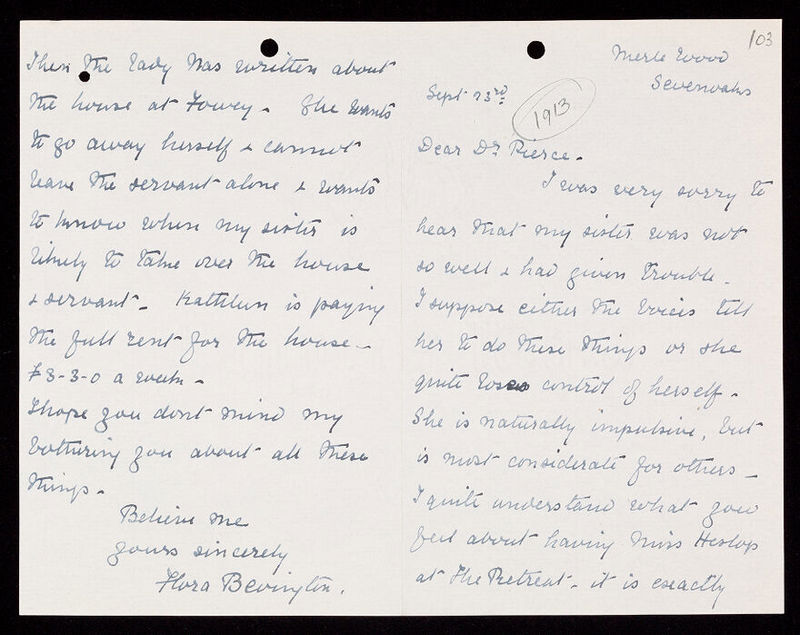 103
Merle Wood
Sevenoaks
Sept 23rd
1913
Dear Dr Pierce.
I was very sorry to
hear that my sister was not
so well & had given trouble.
I suppose either the voices tell
her to do these things or she
quite loses control of herself.
She is naturally impulsive, but
is most considerate for others –
I quite understand what you
feel about having Miss Heslop
at The Retreat – it is exactly
Then the lady has written about
the house at Fowey. She wants
to go away herself & cannot
leave the servant alone & wants
to know when my sister is
likely to take over the house
& servant – Kathleen is paying
the full rent for the house –
£3-3-0 a week –
I hope you dont mind my
bothering you about all these
things –
Believe me
yours sincerely
Flora Bevington.